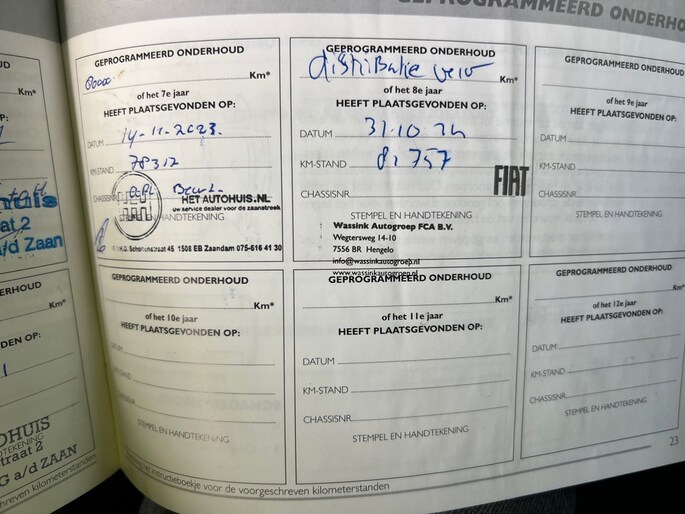 GEPROGRAMMEERD ONDERHO
GEPROGRAMMEERD ONDERHOUD
Km*
of het 7e jaar
HEEFT PLAATSGEVONDEN OP:
DATUM 14-11-2023.
KM-STAND 78312
CHASSISNR.
HET AUTOHUIS.NL
uw service dealer voor de zaanstreek
HANDTEKENING
45 1508 EB Zaandam 075-616 41 30
GEPROGRAMMEERD ONDERHOUD
distributie
Km*
of het 8e jaar
HEEFT PLAATSGEVONDEN OP:
DATUM 31.10 24
KM-STAND 81757
CHASSISNR.
FIAT
STEMPEL EN HANDTEKENING
Wassink Autogroep FCA B.V.
Wegtersweg 14-10
7556 BR Hengelo
info@wassinkautogroep.nl
www.wassinkautogroep.nl
GEPROGRAMMEERD ONDERHOUD
Km*
of het 9e jaar
HEEFT PLAATSGEVONDEN OP:
DATUM
KM-STAND
CHASSISNR.
STEMPEL EN HANDTEKENING
GEPROGRAMMEERD ONDERHOUD
Km*
of het 10e jaar
HEEFT PLAATSGEVONDEN OP:
DATUM
KM-STAND
CHASSISNR.
STEMPEL EN HANDTEKENING
GEPROGRAMMEERD ONDERHOUD
Km*
of het 11e jaar
HEEFT PLAATSGEVONDEN OP:
DATUM
KM-STAND
CHASSISNR.
STEMPEL EN HANDTEKENING
GEPROGRAMMEERD ONDERHOUD
Km*
of het 12e jaar
HEEFT PLAATSGEVONDEN OP:
DATUM
KM-STAND
CHASSISNR.
STEMPEL EN HANDTEKENING
23
het instructieboekje voor de voorgeschreven kilometerstanden
UD
Km*
OP:
at 2
a/d Zaan
HOUD
Km*
DEN OP:
DHUIS
TEKENING
traat 2
G a/d ZAAN
chreven kilometerstanden